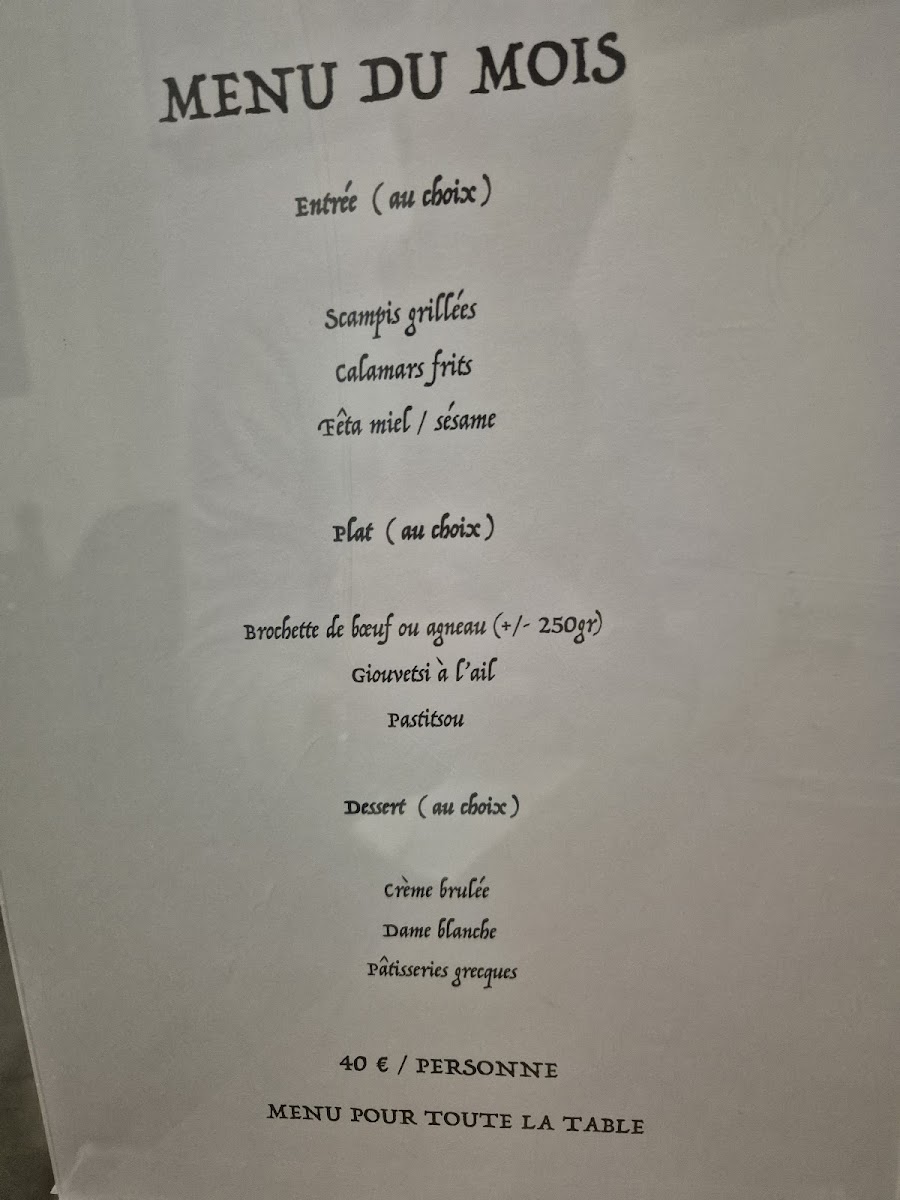 MENU DU MOIS
Entrée (au choix)
Scampis grillées
Calamars frits
Fêta miel / sésame
Plat (au choix)
Brochette de bœuf ou agneau (+/- 250gr)
Giouvetsi à l'ail
Pastitsou
Dessert (au choix)
Crème brulée
Dame blanche
Pâtisseries grecques
40 € / PERSONNE
MENU POUR TOUTE LA TABLE